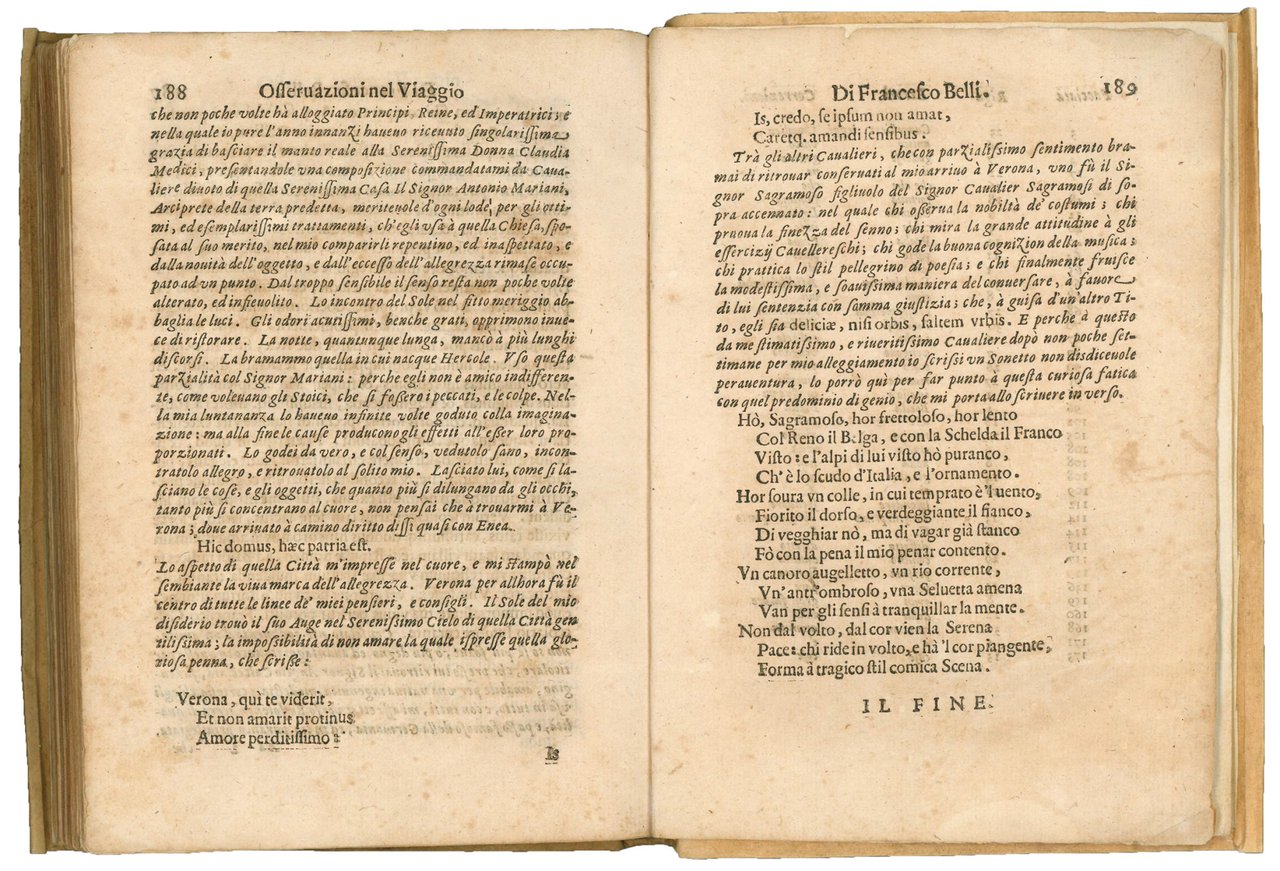 188 Osseruazioni nel Viaggio
che non poche volte hà alloggiato Principi, Reine, ed Imperatrici; e
nella quale io pure l'anno innanzi haueuo riceuuto singolarissima
grazia di basciare il manto reale alla Serenissima Donna Claudia
Medici, presentandole vna composizione commandatami da Caua-
liere diuoto di quella Serenissima Casa. Il Signor Antonio Mariani,
Arciprete della terra predetta, meriteuole d'ogni lode, per gli otti-
mi, ed esemplarissimi trattamenti, ch'egli vsa à quella Chiesa, spo-
sata al suo merito, nel mio comparirli repentino, ed inaspettato, e
dalla nouità dell'oggetto, e dall'eccesso dell'allegrezza rimase occu-
pato ad vn punto. Dal troppo sensibile il senso resta non poche volte
alterato, ed infieuolito. Lo incontro del Sole nel fitto meriggio ab-
baglia le luci. Gli odori acutissimi, benche grati, opprimono inue-
ce di ristorare. La notte, quantunque lunga, mancò à più lunghi
discorsi. La bramammo quella in cui nacque Hercole. Vso questa
parzialità col Signor Mariani: perche egli non è amico indifferen-
te, come voleuano gli Stoici, che si fossero i peccati, e le colpe. Nel-
la mia luntananza lo haueuo infinite volte goduto colla imagina-
zione: ma alla fine le cause producono gli effetti all'esser loro pro-
porzionati. Lo godei da vero, e col senso, vedutolo sano, incon-
tratolo allegro, e ritrouatolo al solito mio. Lasciato lui, come si la-
sciano le cose, e gli oggetti, che quanto più si dilungano da gli occhi,
tanto più si concentrano al cuore, non pensai che à trouarmi à Ve-
rona; doue arriuato à camino diritto dissi quasi con Enea.
Hic domus, hæc patria est.
Lo aspetto di quella Città m'impresse nel cuore, e mi stampò nel
sembiante la viua marca dell'allegrezza. Verona per allhora fù il
centro di tutte le linee de' miei pensieri, e consigli. Il Sole del mio
disiderio trouò il suo Auge nel Serenissimo Cielo di quella Città gen
tilissima; la impossibilità di non amare la quale ispresse quella glo-
riosa penna, che scrisse:
Verona, quì te viderit,
Et non amarit protinus
Amore perditissimo:
Is
Di Francesco Belli. 189
Is, credo, se ipsum non amat,
Caretq. amandi sensibus.
Trà gli altri Caualieri, che con parzialissimo sentimento bra-
mai di ritrouar conseruati al mio arriuo à Verona, vno fù il Si-
gnor Sagramoso figliuolo del Signor Caualier Sagramosi di so-
pra accennato: nel quale chi osserua la nobiltà de' costumi; chi
pruoua la finezza del senno; chi mira la grande attitudine à gli
essercizij Cauellereschi; chi gode la buona cognizion della musica;
chi prattica lo stil pellegrino di poesia; e chi finalmente fruisce
la modestissima, e soauissima maniera del conuersare, à fauore
di lui sentenzia con somma giustizia; che, à guisa d'un'altro Ti-
to, egli sia deliciæ, nisi orbis, saltem vrbis. E perche à questo
da me stimatissimo, e riueritissimo Caualiere dopò non poche set-
timane per mio alleggiamento io scrissi vn Sonetto non disdiceuole
perauentura, lo porrò quì per far punto à questa curiosa fatica
con quel predominio di genio, che mi porta allo scriuere in verso.
Hò, Sagramoso, hor frettoloso, hor lento
Col Reno il Belga, e con la Schelda il Franco
Visto: e l'alpi di lui visto hò puranco,
Ch'è lo scudo d'Italia, e l'ornamento.
Hor soura vn colle, in cui temprato è'l uento,
Fiorito il dorso, e verdeggiante il fianco,
Di vegghiar nò, ma di vagar già stanco
Fò con la pena il mio penar contento.
Vn canoro augelletto, vn rio corrente,
Vn'antr'ombroso, vna Seluetta amena
Van per gli sensi à tranquillar la mente.
Non dal volto, dal cor vien la Serena
Pace: chi ride in volto, e hà 'l cor piangente,
Forma à tragico stil comica Scena.
IL FINE.